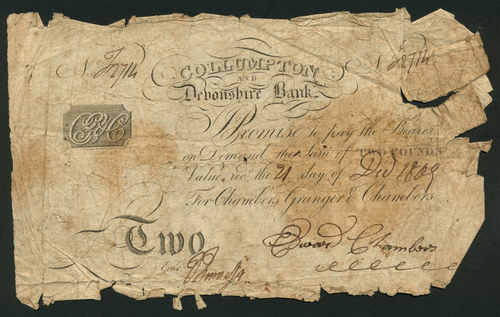 No F2714 No F2714
COLLUMPTON
AND
Devonshire Bank
I Promise to pay the Bearer
on Demand the Sum of TWO POUNDS
Value recd the 21 day of Decr 1809
For Chambers, Granger & Chambers
Two
Edward Chambers
Entd